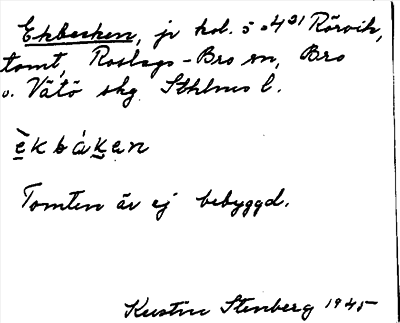 Ekbacken, jr kol. 5 o 4 21 Rörvik,
tomt, Roslags-Bro sn, Bro
o. Vätö skg Sthlms l.
èkbáken
Tomten är ej bebyggd.
Kerstin Stenberg 1945